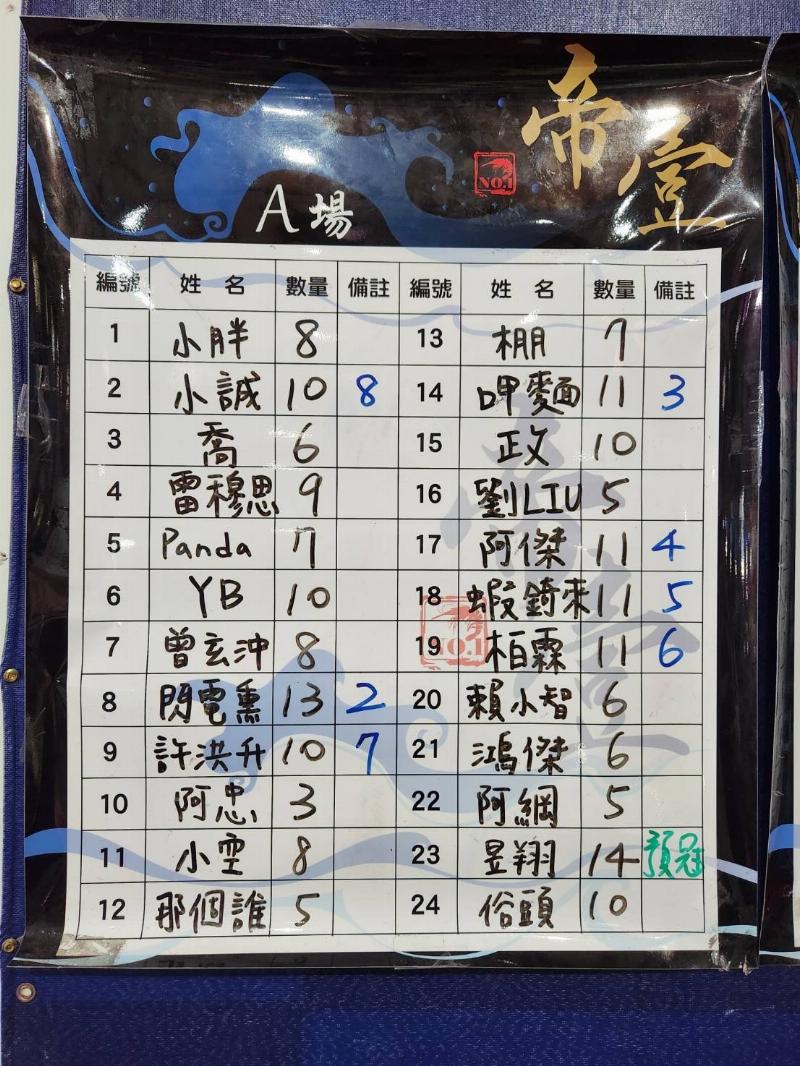 帝壹
NO.1
A場
編號 姓名 數量 備註 編號 姓名 數量 備註
1 小胖 8 13 棚 7
2 小誠 10 8 14 呷麵 11 3
3 喬 6 15 政 10
4 雷穆思 9 16 劉LIU 5
5 Panda 7 17 阿傑 11 4
6 YB 10 18 蝦錡來 11 5
7 曾玄沖 8 19 柏霖 11 6
8 閃電熏 13 2 20 賴小智 6
9 許洪升 10 7 21 鴻傑 6
10 阿忠 3 22 阿綱 5
11 小空 8 23 昱翔 14 預冠
12 那個誰 5 24 俗頭 10
帝壹
NO.1